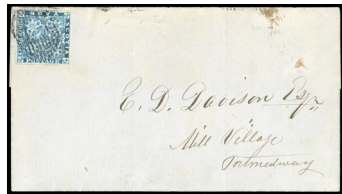 POSTAGE
E. D. Davison Esqr
Mill Village
Portmedway